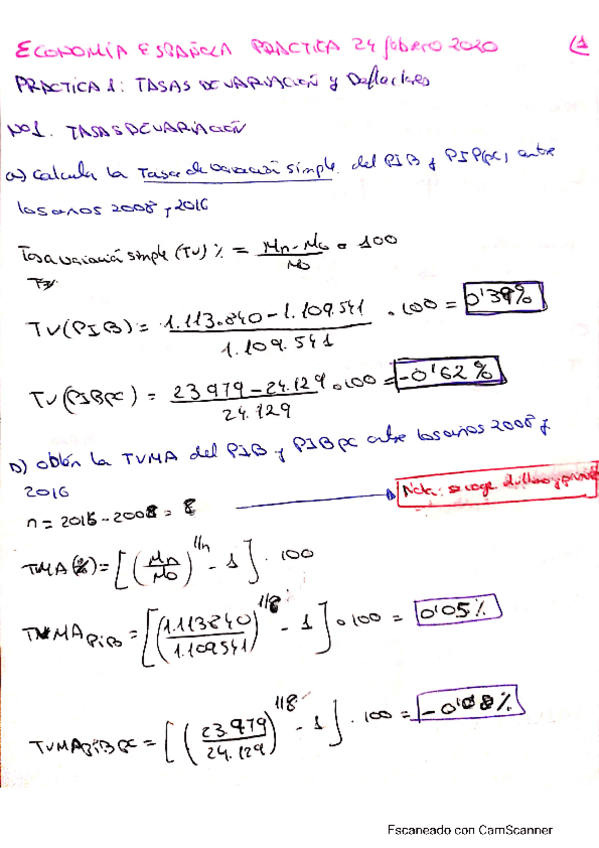 ECONOMÍA ESPAÑOLA PRACTICA 24 febrero 2020 (1
PRACTICA 1: TASAS DE VARIACIÓN y Deflactores
Nº1. TASAS DE VARIACIÓN
a) Calcula la Tasa de variación simple del PIB y PIB(pc) entre
los años 2008 y 2016
Tasa variación simple (TV) % = Mn - Mo / Mo • 100
TV(PIB) = 1.113.840 - 1.109.541 / 1.109.541 • 100 = 0'39%
TV(PIBpc) = 23979 - 24.129 / 24.129 • 100 = -0'62%
b) obtén la TVMA del PIB y PIBpc entre los años 2008 y
2016
n = 2016 - 2008 = 8
Nota: se coge último y primer
TMA(%) = [(Mn/Mo)^1/n - 1] • 100
TVMA PIB = [(1.113840/1.109541)^1/8 - 1] • 100 = 0'05%
TVMA PIB pc = [(23.979/24.129)^1/8 - 1] • 100 = -0'08%
Escaneado con CamScanner